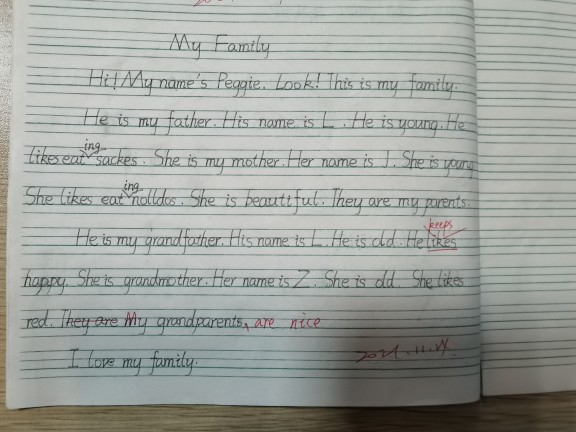 My Family
Hi! My name's Peggie. Look! This is my family.
He is my father. His name is L. He is young. He
ing
likes eat sackes. She is my mother. Her name is J. She is young
ing
She likes eat nolldos. She is beautiful. They are my parents.
keeps
He is my grandfather. His name is L. He is old. He likes
happy. She is grandmother. Her name is Z. She is old. She likes
red. They are My grandparents, are nice
I love my family.